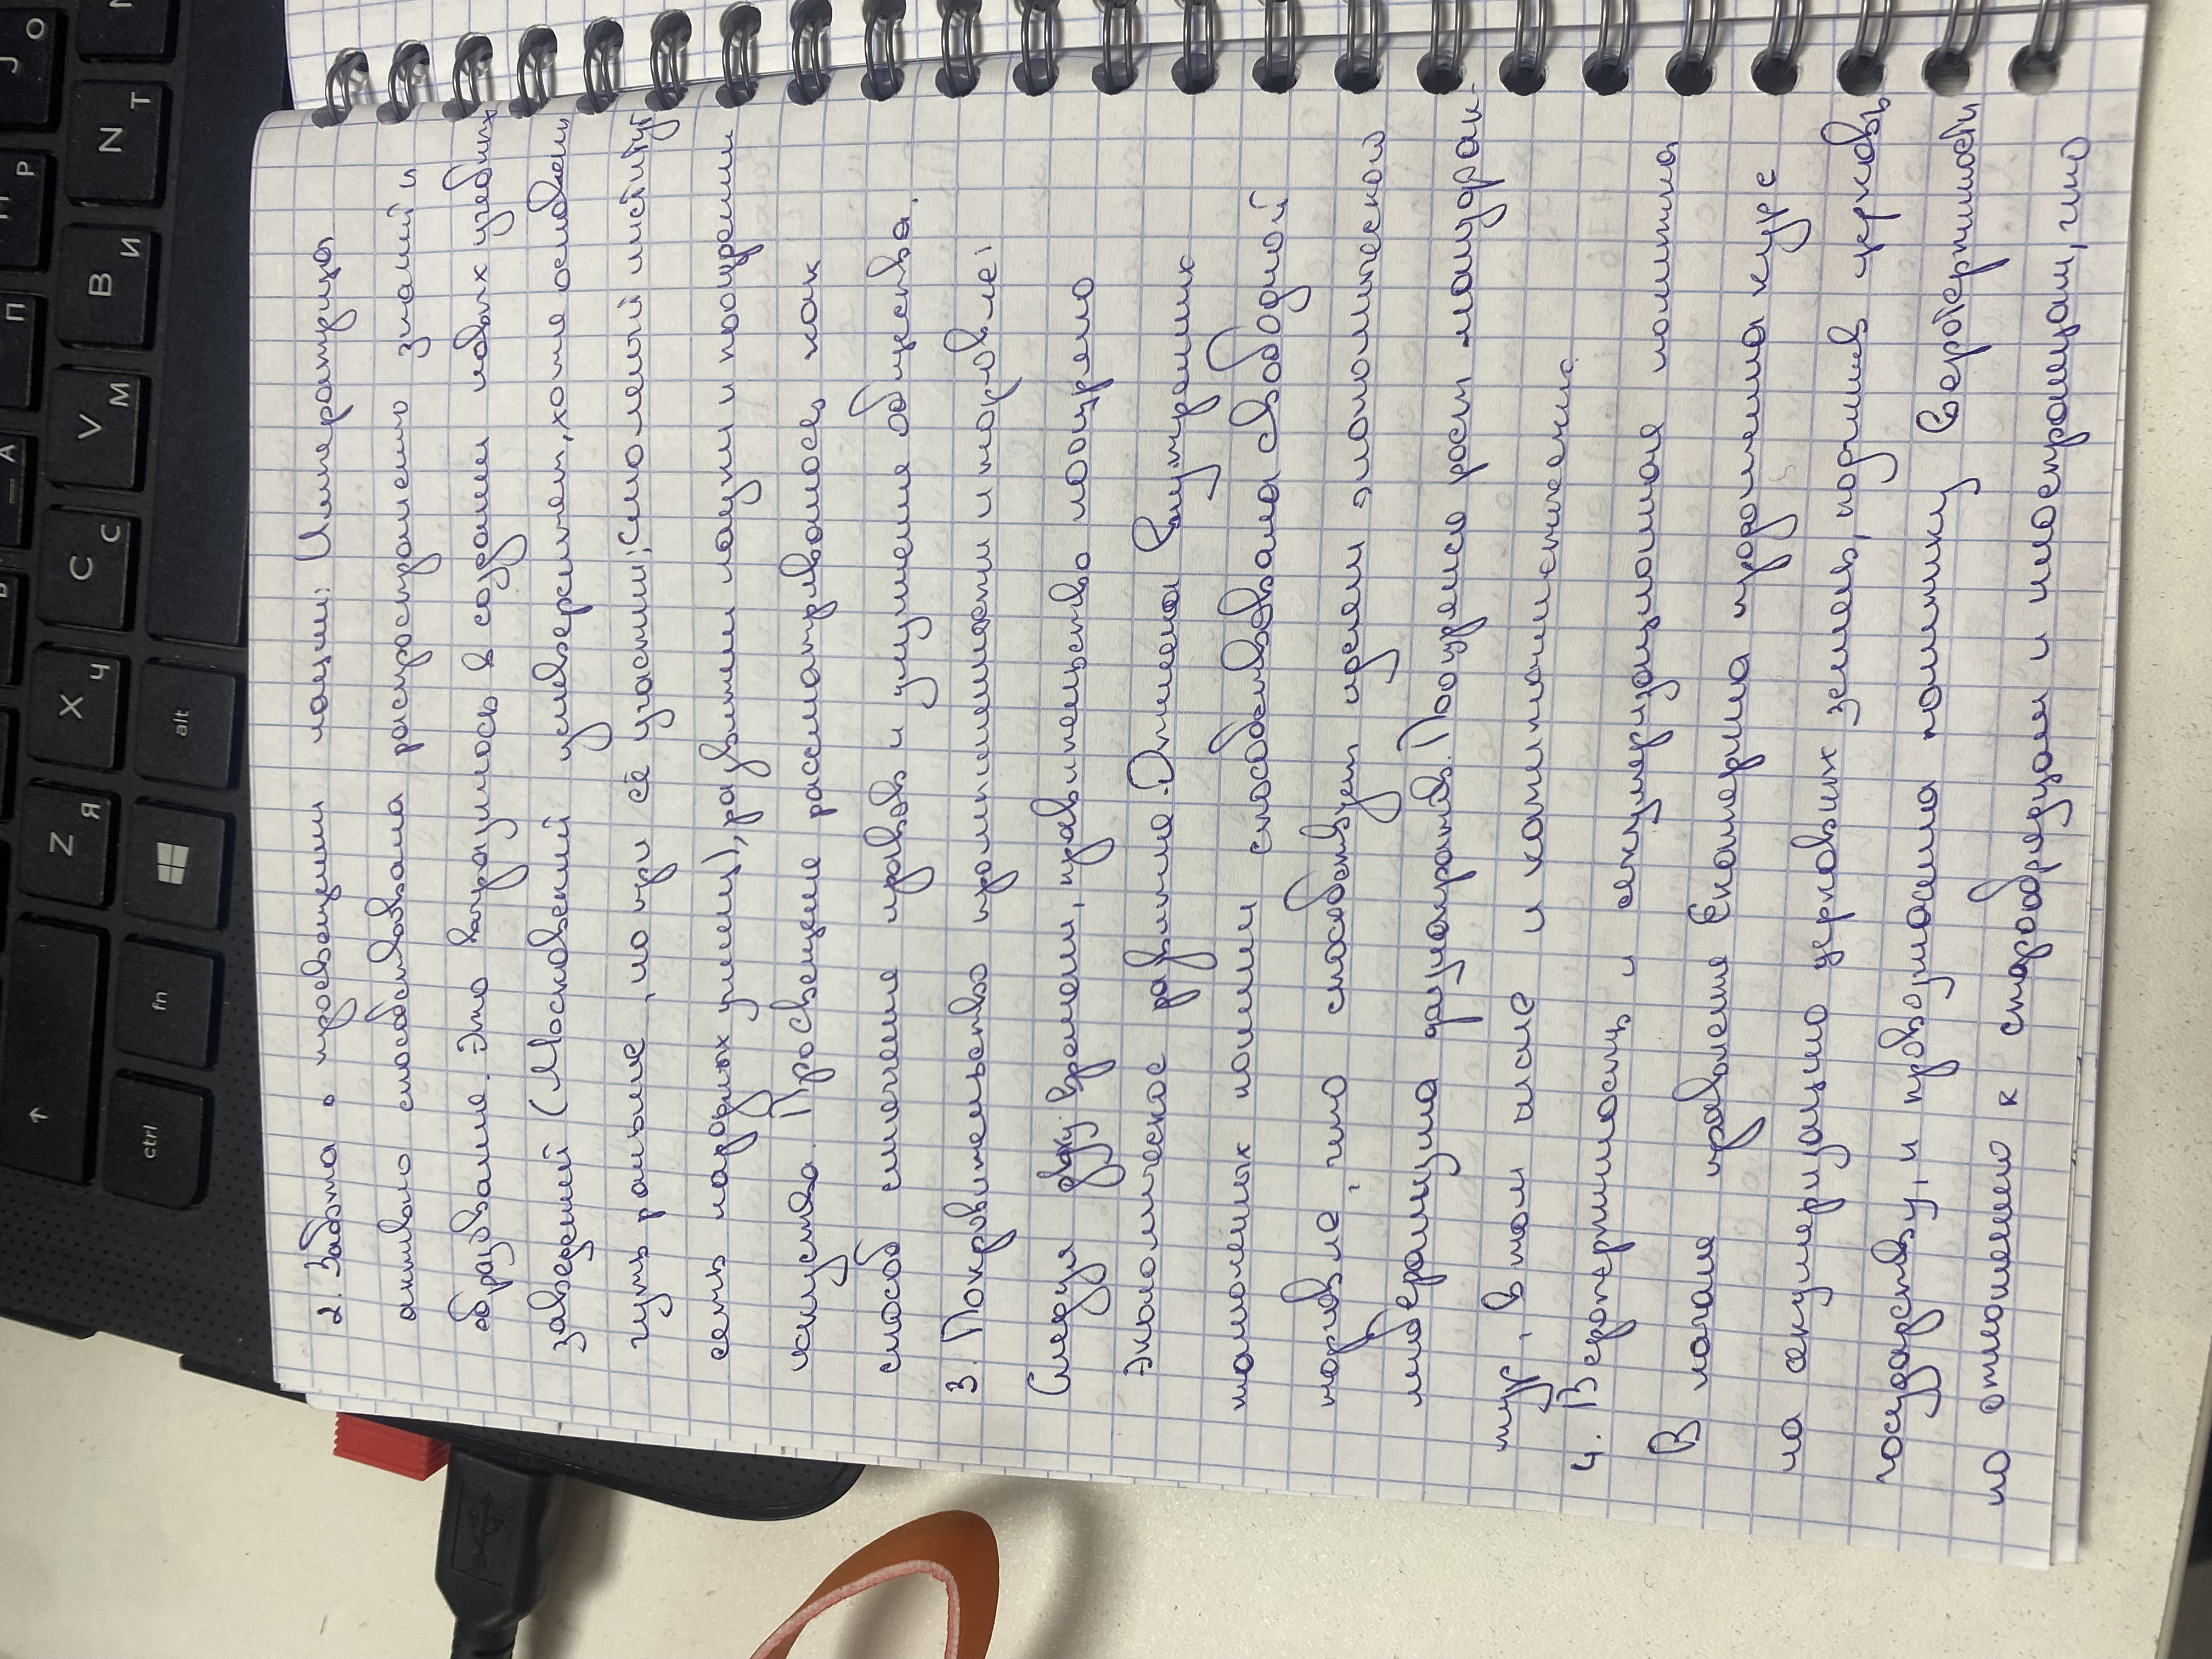 2. Забота о просвещении нации: Императрица
активно способствовала распространению знаний и
образование. Это выразилось в создании новых учебных
заведений (Московский университет, хотя основан
чуть раньше, но при её участии; Смольный институт
сеть народных училищ), развитии науки и поощрении
искусства. Просвещение рассматривалось как
способ смягчение нравов и улучшение общества.
3. Покровительство промышленности и торговле:
Следуя духу времени, правительство поощряло
экономическое развитие. Отмена внутренних
таможенных пошлин способствовала свободной
торговле, что способствует идеям экономического
либерализма физиократов. Поощрялся рост мануфак-
тур, в том числе и капиталистических.
4. Веротерпимость и секуляризационная политика
В начале правление Екатерина продолжила курс
на секуляризацию церковных земель, подчинив церковь
государству, и проводимая политику веротерпимости
по отношению к старообрядцам и иностранцам, что
J О N Т Р П В И А V М С С Х Ч Z Я alt fn ctrl